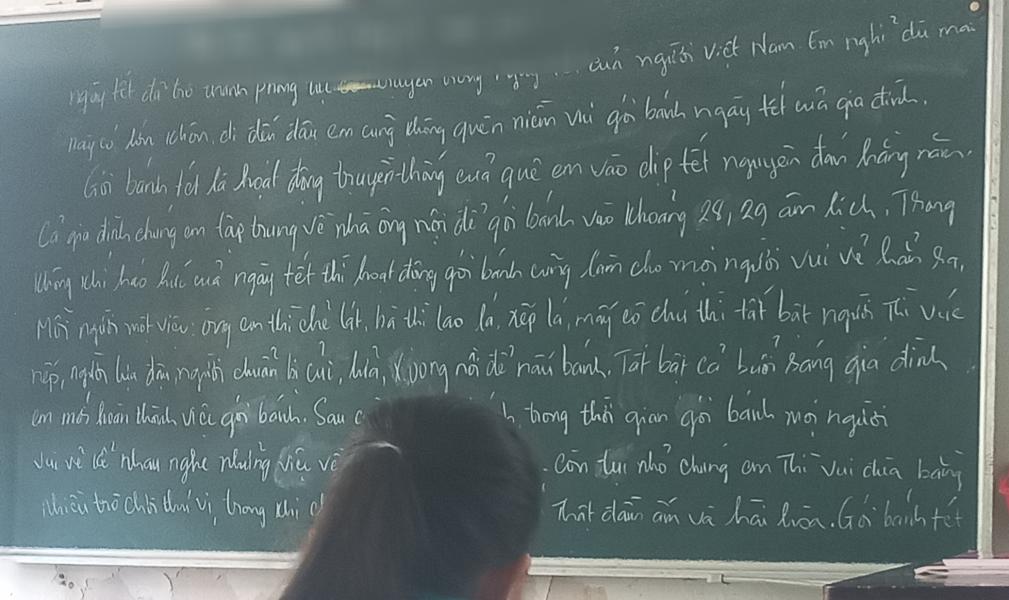 ngày tết đã trở thành phong tục của người Việt Nam. Em nghĩ dù mai
này có lớn khôn, đi đến đâu em cũng không quên niềm vui gói bánh ngày tết của gia đình.
Gói bánh tét là hoạt động truyền thống của quê em vào dịp tết nguyên đán hằng năm.
Cả gia đình chúng em tập trung về nhà ông nội để gói bánh vào khoảng 28, 29 âm lịch. Trong
không khí háo hức của ngày tết thì hoạt động gói bánh cũng làm cho mọi người vui vẻ hẳn ra,
Mỗi người một việc: ông em thì chẻ lạt, bà thì lao lá, xếp lá, mấy cô chú thì tất bật người thì vúc
nếp, người lựa đậu, người chuẩn bị củi, lửa, xoong nồi để nấu bánh. Tất bật cả buổi sáng gia đình
em mới hoàn thành việc gói bánh. Sau trong thời gian gói bánh mọi người
vui vẻ kể nhau nghe những việc về còn tụi nhỏ chúng em thì vui đùa bằng
nhiều trò chơi thú vị, trong khi Thật đầm ấm và hài hòa. Gói bánh tét